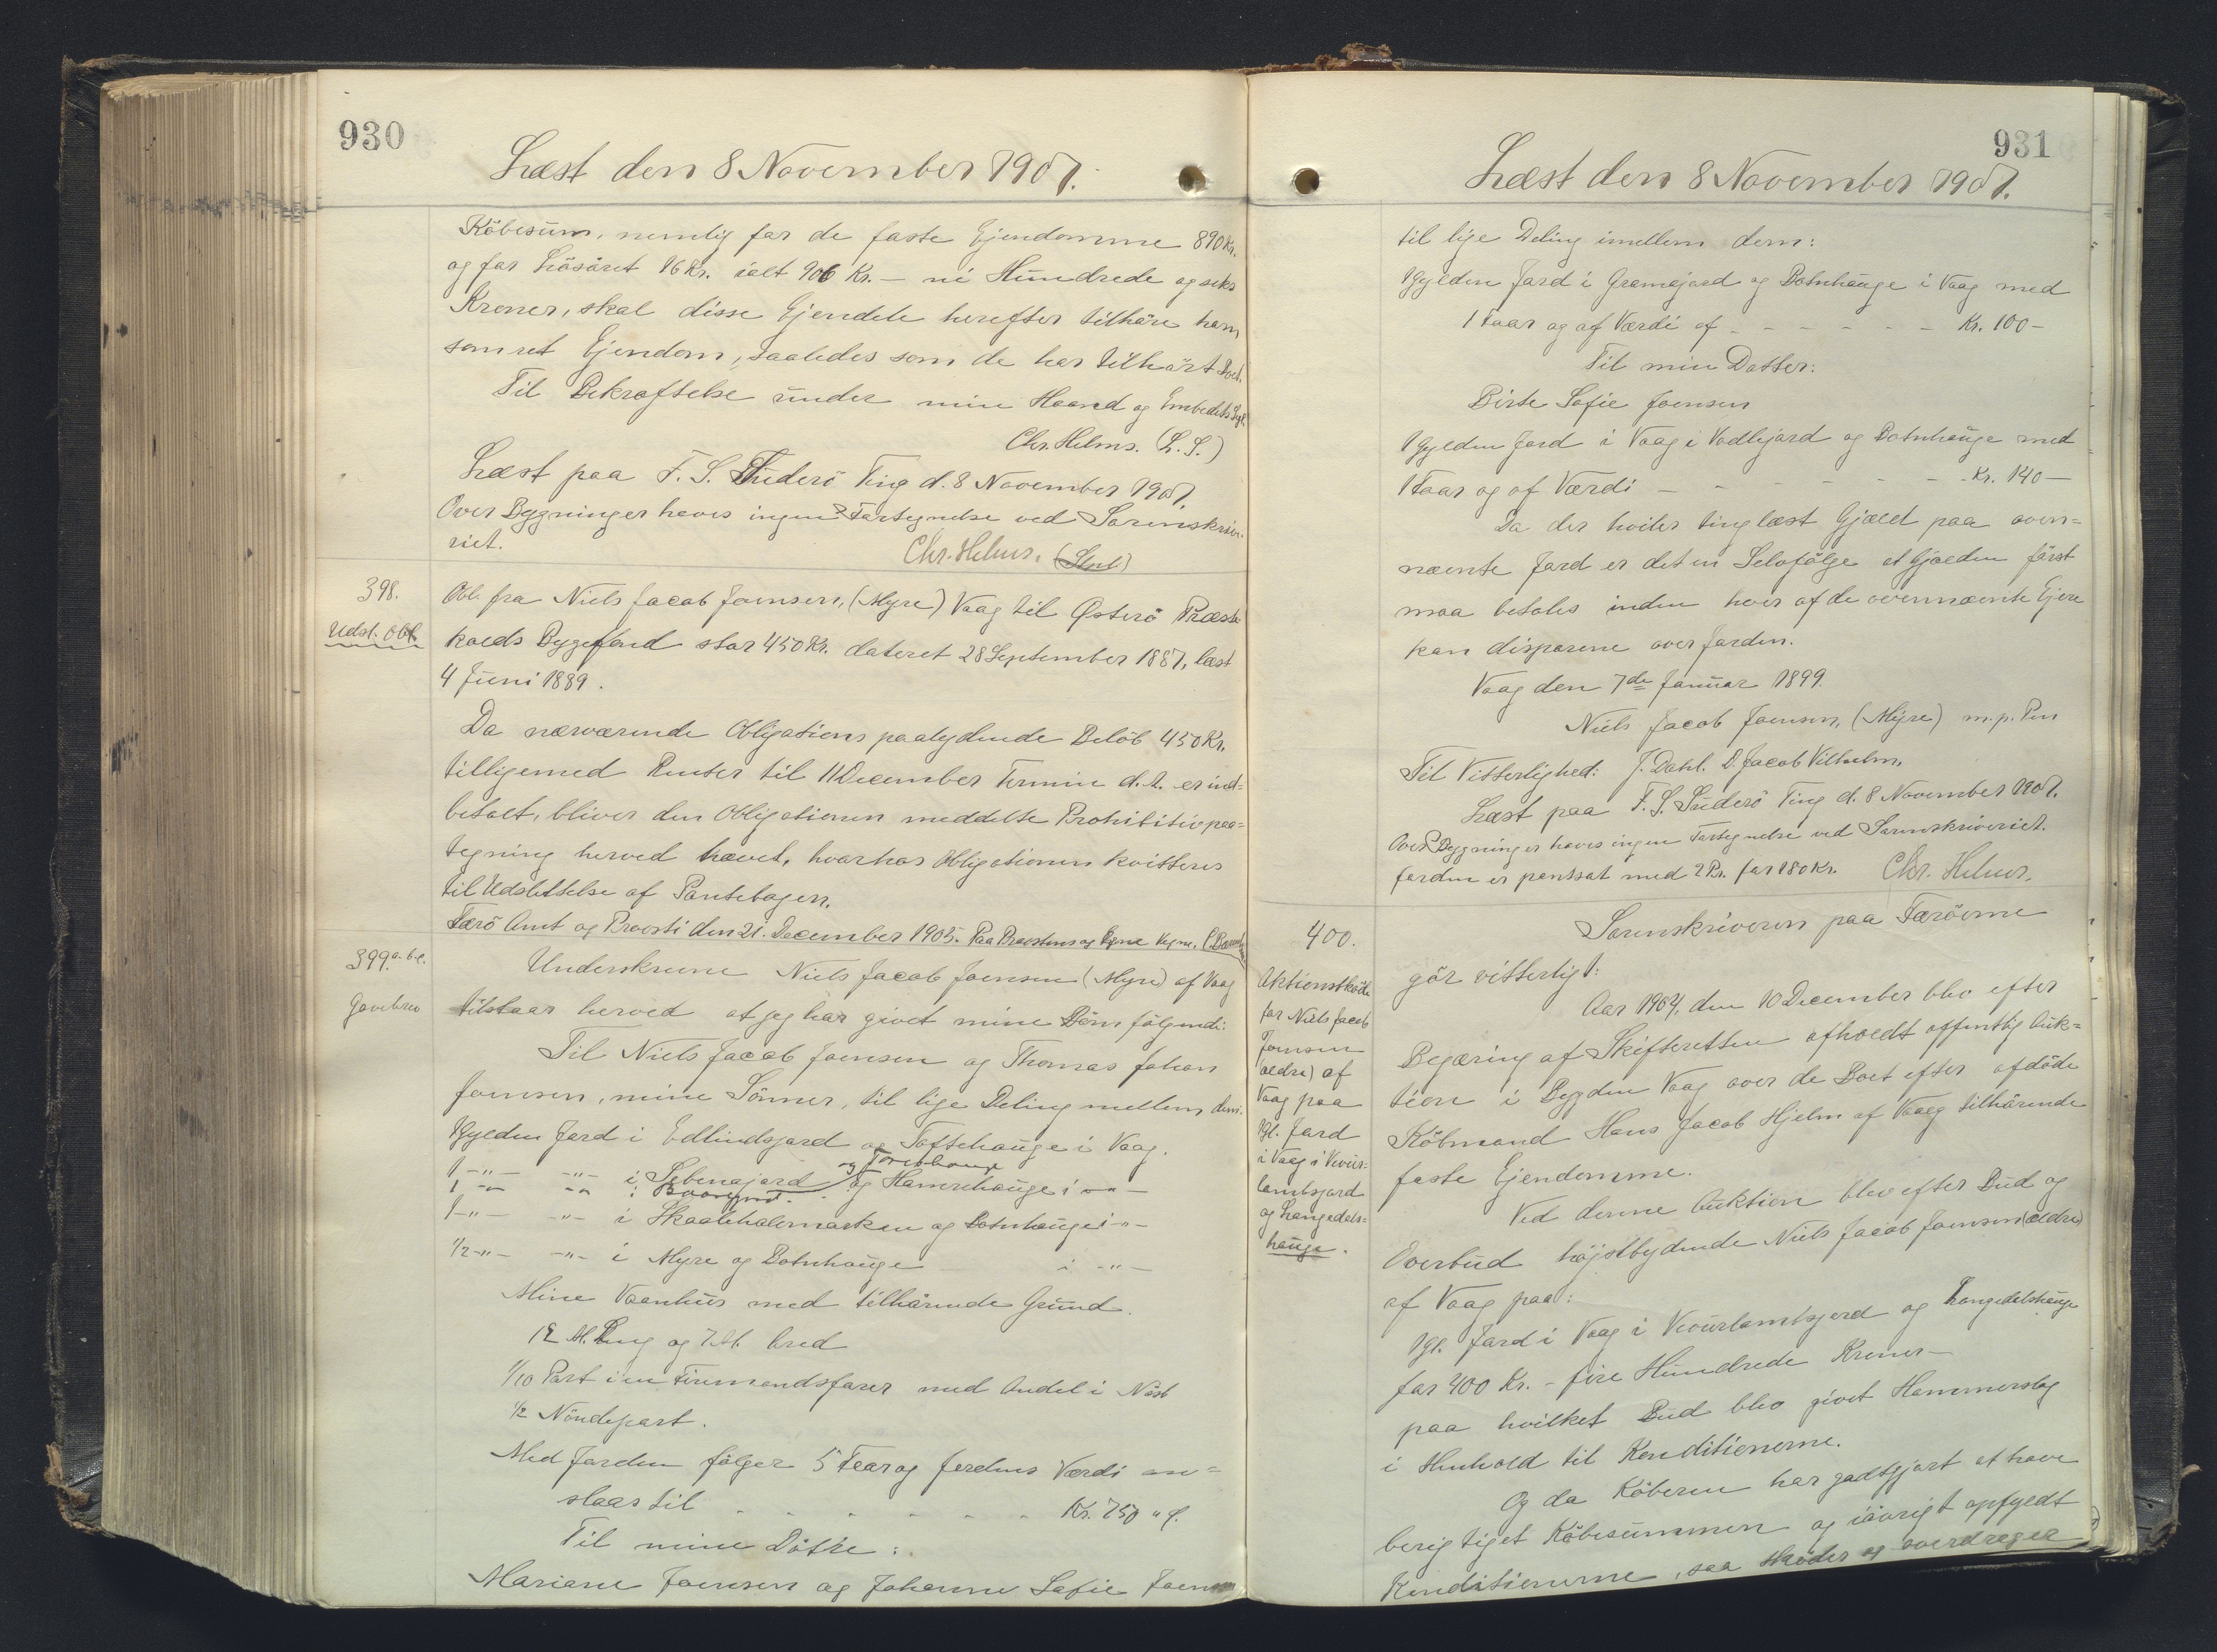 930
Læst den 8 November 1907.
Köbesum, nemlig for de faste Ejendomme 890 Kr.
og for Lösöret 16 Kr. ialt 906 Kr. – ni Hundrede og seks
Kroner, skal disse Ejendele herefter tilhöre ham
som ret Ejendom, saaledes som de har tilhört Boet.
Til Bekræftelse under min Haand og Embedets Segl.
Chr. Helms. (L. S.)
Læst paa F. S. Suderö Ting d. 8 November 1907.
Over Bygninger haves ingen Fortegnelse ved Sorenskrive-
riet.
Chr. Helms.
398.
Udsl. Obl.
Obl. fra Niels Jacob Joensen, (Myre) Vaag til Østerö Præste
kalds Byggefond stor 450 Kr. dateret 28 September 1887, læst
4 Juni 1889.
Da nærværende Obligations paalydende Beløb 450 Kr.
tilligemed Renter til 11 December Termin d. A. er ind=
betalt, bliver den Obligationen meddelte Prohibitivpaa=
tegning herved hævet, hvorhos Obligationen kvitteres
til Udslettelse af Pantebogen.
Færö Amt og Provsti den 21. December 1905. Paa Provstens og Egne Vegne.
399. a-b-c.
Gavebrev
Underskrevne Niels Jacob Joensen (Myre) af Vaag
tilstaar herved at jeg har givet mine Börn fölgende:
Til Niels Jacob Joensen og Thomas Johan
Joensen, mine Sönner, til lige Deling mellem dem.
1 Gylden Jord i Edlindsjord og Toftehauge i Vaag.
1 -"- -"- i Sebenajord og Hamrehauge i -"-
1 -"- -"- i
1 -"- -"- i Skaalehalemarken og Botnhauge i -"-
1/2 -"- -"- i Myre og Botnhauge i -"-
Mine Vaanhus med tilhörende Grund.
12 Al. Lang og 7 Al. bred
1/10 Part i en Firemandsfarer med Andel i Nöst
1/2 Nöndepart.
Med Jorden fölger 5 Faar og Jordens Værdi an=
slaas til - - - - - - Kr. 750 " f.
Til mine Dötre:
Mariane Joensen og Johanne Sofie Joensen
931
Læst den 8 November 1907.
til lige Deling imellem dem:
1 Gylden Jord i Gramajord og Botnhauge i Vaag med
1 Faar og af Værdi af - - - - - - Kr. 100 -
Til min Datter:
Birte Sofie Joensen
1 Gylden Jord i Vaag i Vadlejord og Botnhauge med
1 Faar og af Værdi - - - - - - Kr. 140 -
Da der hviler tinglæst Gjæld paa oven=
nævnte Jord er det en Selvfölge at Gjælden först
maa betales inden hver af de ovennævnte Ejere
kan disponere over Jorden.
Vaag den 7de Januar 1899.
Niels Jacob Joensen, (Myre) m. p. Pen
Til Vitterlighed: J. Dahl. D. Jacob Vilhelm.
Læst paa F. S. Suderö Ting d. 8 November 1907.
Over Bygninger haves ingen Fortegnelse ved Sorenskriveriet.
Jorden er pantsat med 2 Pr. for 180 Kr. Chr. Helms.
400.
Auktionsskøde
for Niels Jacob
Joensen
(ældre) af
Vaag paa
1 Gl. Jord
i Vaag i Vevur=
lambsjord
og Langedals=
hauge.
Sorenskriveren paa Færöerne
gör vitterligt:
Aar 1904, den 10 December blev efter
Begæring af Skifteretten afholdt offentlig Auk=
tion i Bygden Vaag over de Boet efter afdöde
Köbmand Hans Jacob Hjelm af Vaag tilhörende
faste Ejendomme.
Ved denne Auktion blev efter Bud og
Overbud höjstbydende Niels Jacob Joensen (ældre)
af Vaag paa:
1 Gl. Jord i Vaag i Vevurlambsjord og Langedalshauge
for 400 Kr. – fire Hundrede Kroner –
paa hvilket Bud blev givet Hammerslag
i Henhold til Konditionerne.
Og da Köberen har godtgjort at have
berigtiget Köbesummen og iövrigt opfyldt
Konditionerne, saa sköder og overdrager